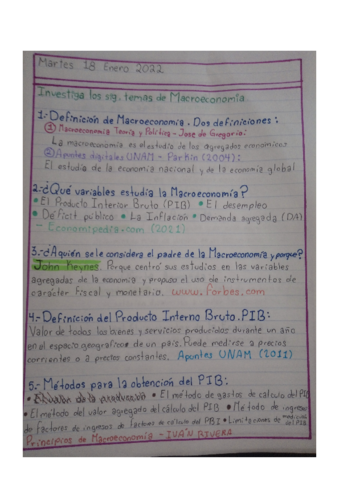 Martes 18 Enero 2022
Investiga los sig. temas de Macroeconomía.
1.- Definición de Macroeconomía. Dos definiciones:
① Macroeconomía Teoría y Política - Jose de Gregorio:
La macroeconomía es el estudio de los agregados económicos
② Apuntes digitales UNAM - Parkin (2004):
El estudio de la economía nacional y de la economía global
2.- ¿Qué variables estudia la Macroeconomía?
• El Producto Interior Bruto (PIB) • El desempleo
• Déficit público • La Inflación • Demanda agregada (DA)
- Economipedia.com (2021)
3.- ¿A quién se le considera el padre de la Macroeconomía y porque?
John Keynes. Porque centró sus estudios en las variables
agregadas de la economía y propuso el uso de instrumentos de
carácter fiscal y monetario. www.forbes.com
4.- Definición del Producto Interno Bruto. PIB:
Valor de todos los bienes y servicios producidos durante un año
en el espacio geográfico de un país. Puede medirse a precios
corrientes o a precios constantes. Apuntes UNAM (2011)
5.- Métodos para la obtención del PIB:
• El método de gastos de cálculo del PIB
• El método del valor agregado del cálculo del PIB • Método de ingresos
de factores de ingresos de factores de cálculo del PBI • Limitaciones de
del PIB
Principios de Macroeconomía - IVÁN RIVERA